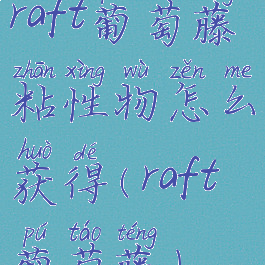 raft葡萄藤
zhān xìng wù zěn me
粘性物怎么
huò dé
获得(raft
pú táo téng
葡萄藤)